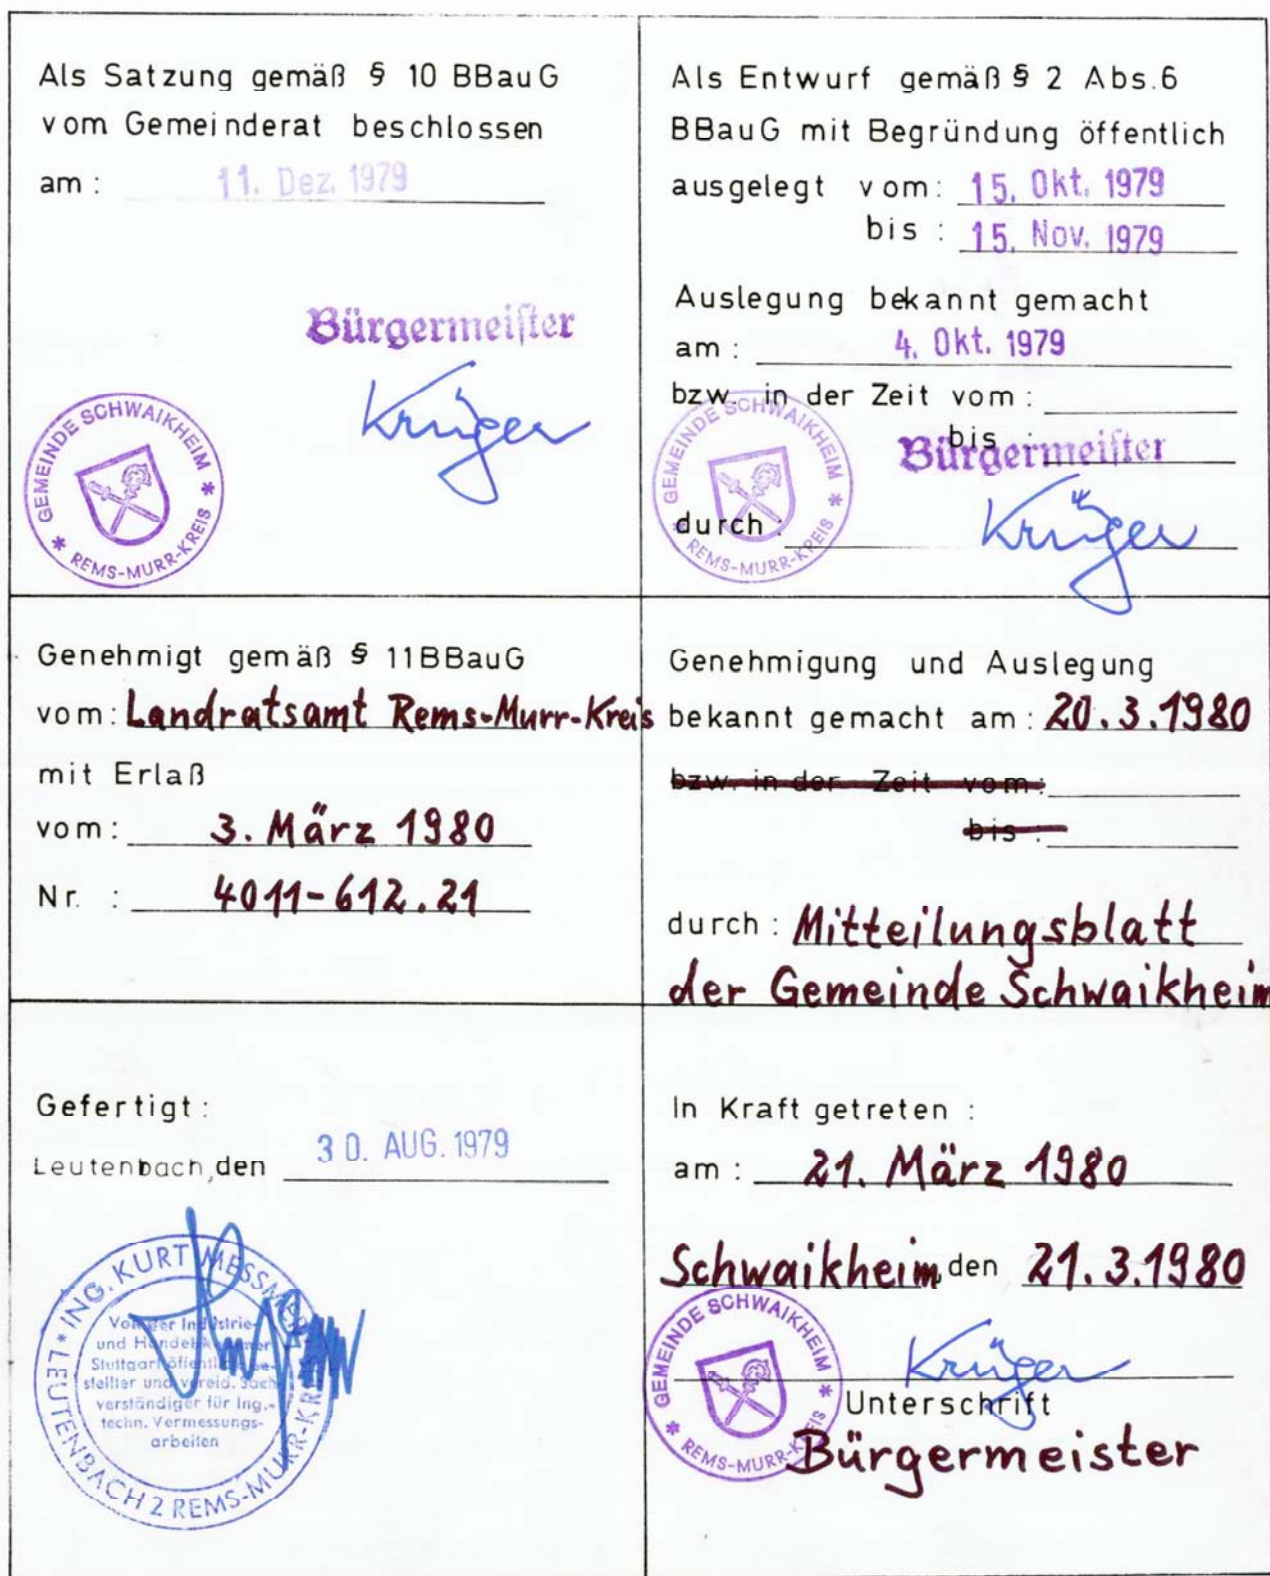 Als Satzung gemäß § 10 BBauG
vom Gemeinderat beschlossen
am : 11. Dez. 1979
Bürgermeister
Krüger
GEMEINDE SCHWAIKHEIM
* REMS-MURR-KREIS *
Als Entwurf gemäß § 2 Abs.6
BBauG mit Begründung öffentlich
ausgelegt vom : 15. Okt. 1979
bis : 15. Nov. 1979
Auslegung bekannt gemacht
am : 4. Okt. 1979
bzw. in der Zeit vom :
bis :
Bürgermeister
durch :
Krüger
GEMEINDE SCHWAIKHEIM
* REMS-MURR-KREIS *
Genehmigt gemäß § 11 BBauG
vom : Landratsamt Rems-Murr-Kreis
mit Erlaß
vom : 3. März 1980
Nr. : 4011-612.21
Genehmigung und Auslegung
bekannt gemacht am : 20.3.1980
bzw. in der Zeit vom :
bis :
durch : Mitteilungsblatt
der Gemeinde Schwaikheim
Gefertigt :
Leutenbach, den 30. AUG. 1979
* ING. KURT MESSMER
LEUTENBACH 2 REMS-MURR-KREIS
Von der Industrie-
und Handelskammer
Stuttgart öffentlich be-
stellter und vereid. Sach-
verständiger für Ing.-
techn. Vermessungs-
arbeiten
In Kraft getreten :
am : 21. März 1980
Schwaikheim, den 21.3.1980
GEMEINDE SCHWAIKHEIM
* REMS-MURR-KREIS *
Krüger
Unterschrift
Bürgermeister